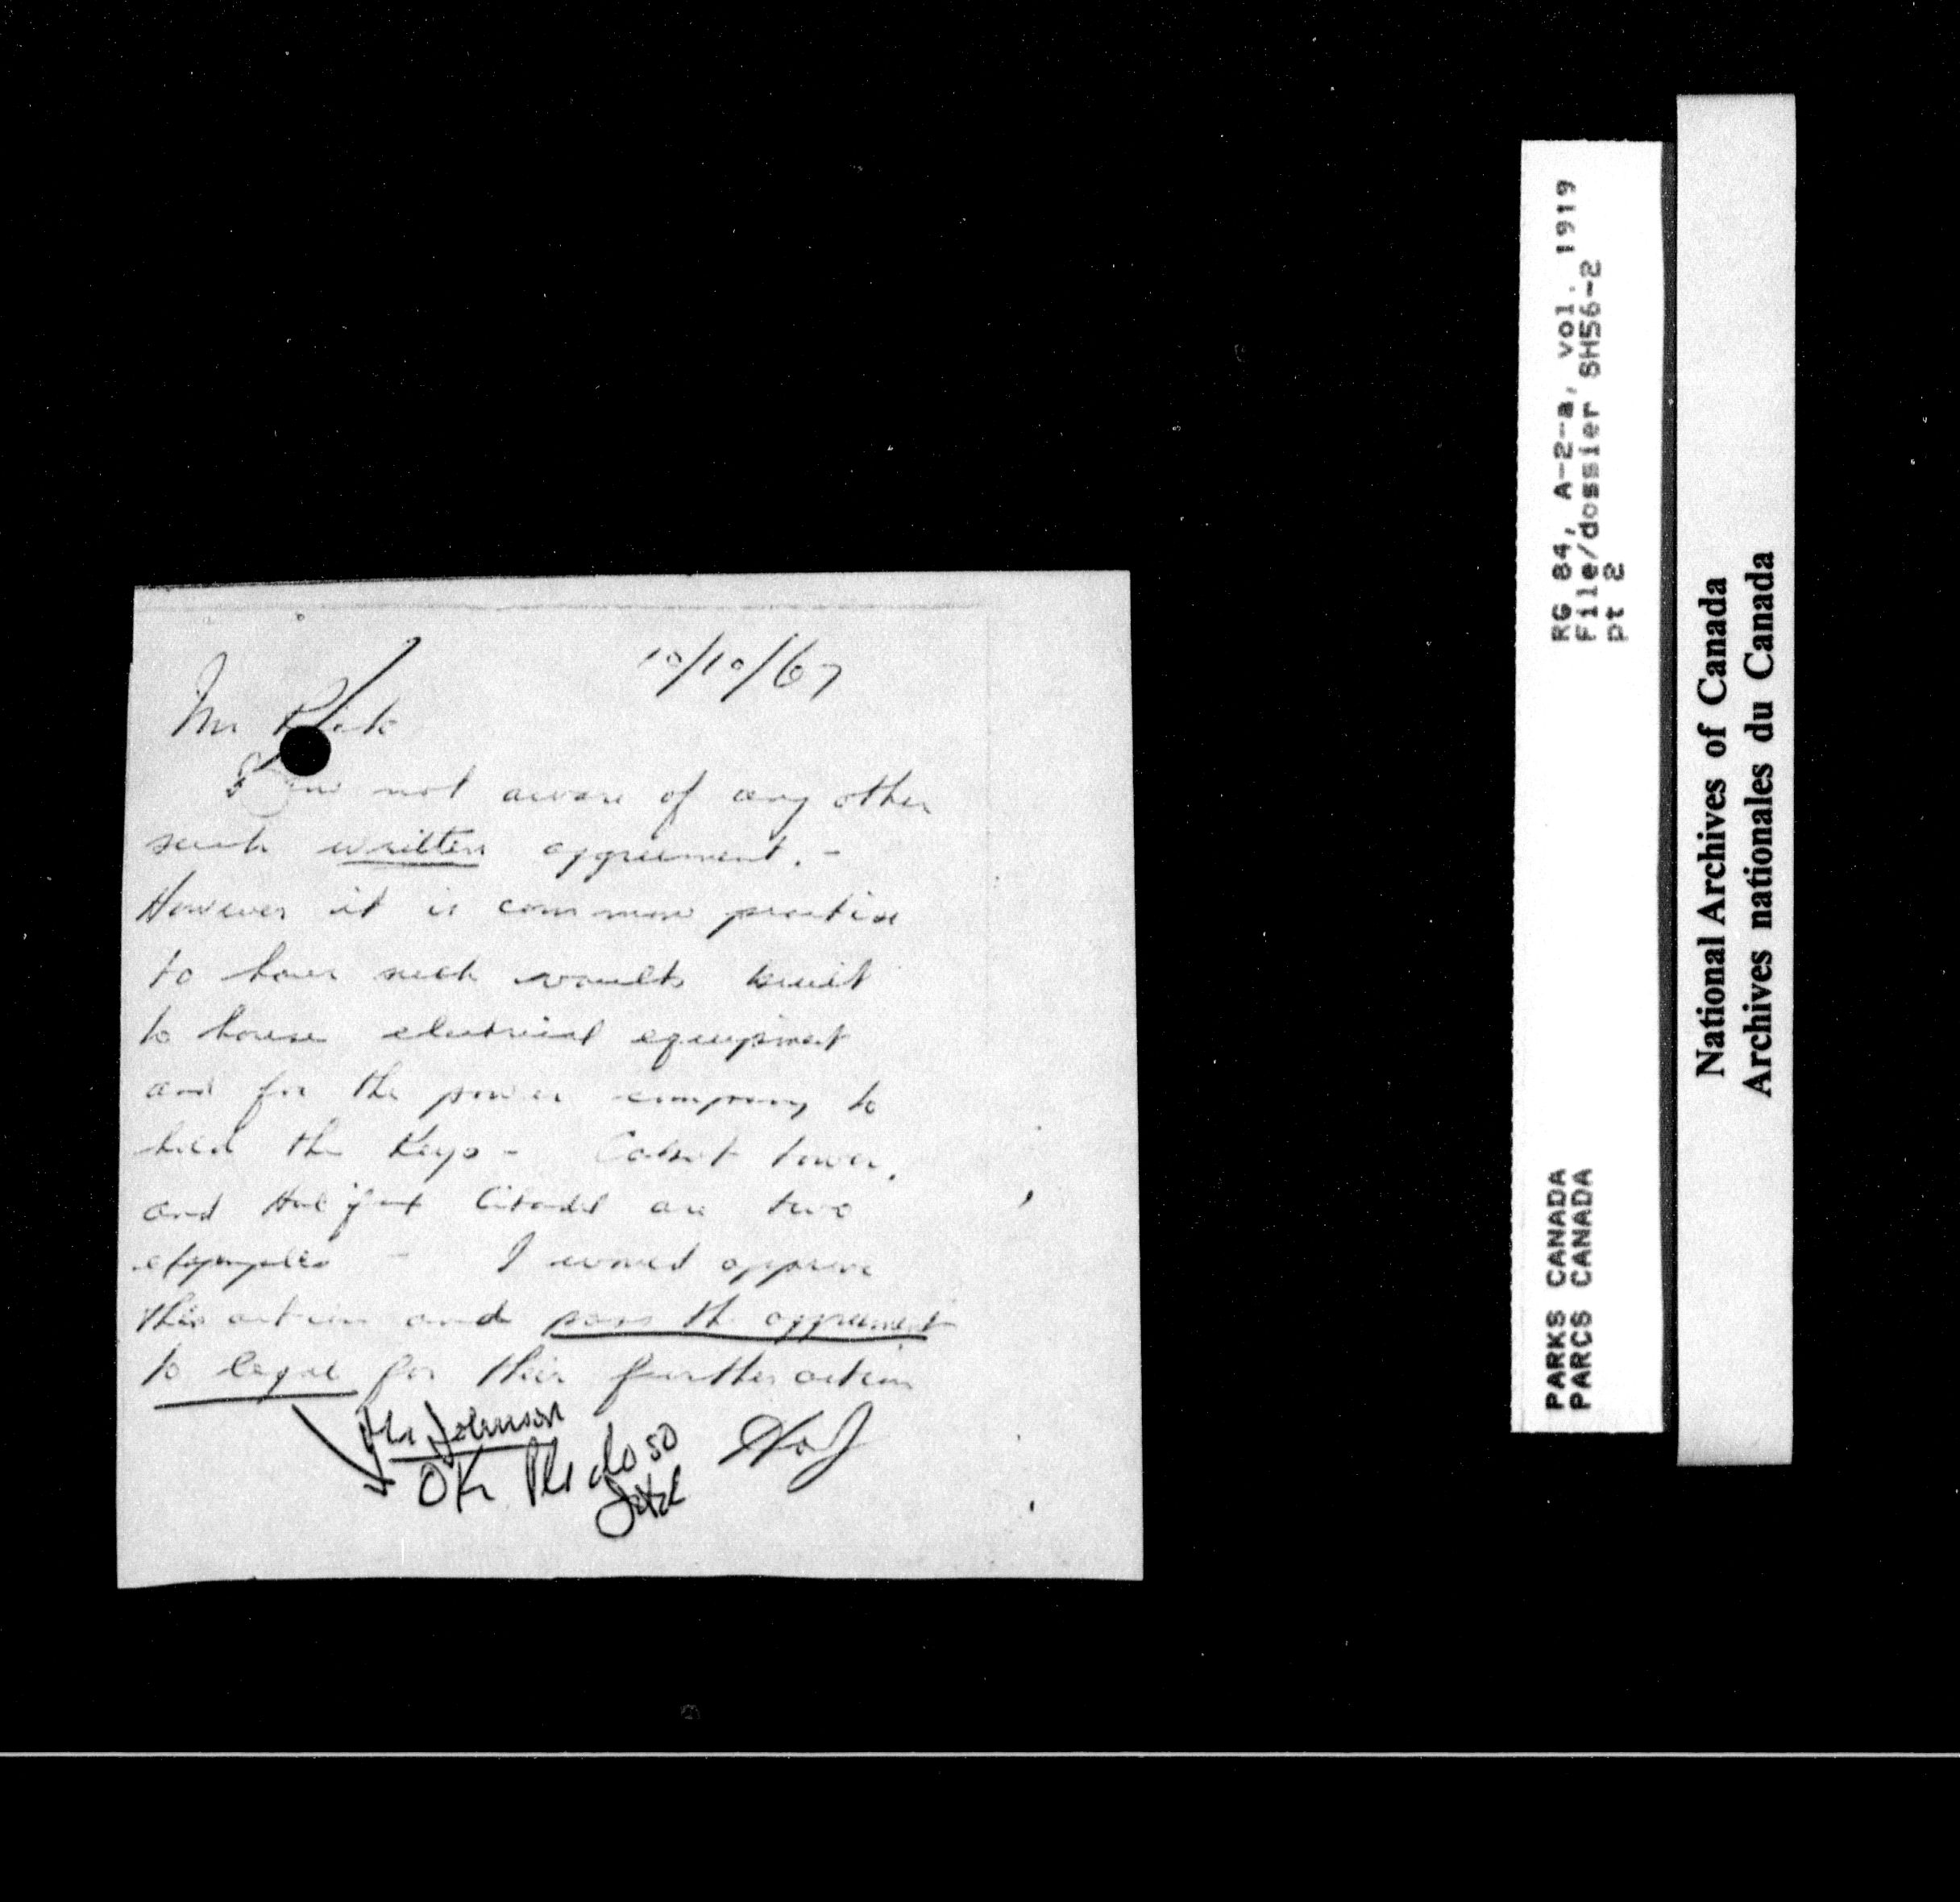 10/10/67
Mr
I am not aware of any other
such written aggreement. -
However it is common practise
to have such vaults built
to house electrical equipment
and for the power company to
hold the keys - Cabot tower,
and Halifax Citadel are two
examples - I would approve
this action and pass the aggreement
to legal for their further action
Mr Johnson
OK Pls do so
RG 84, A-2-a, vol. 1919
File/dossier 8H56-2
pt 2
PARKS CANADA
PARCS CANADA
National Archives of Canada
Archives nationales du Canada